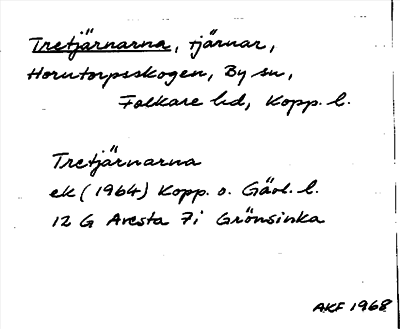 Tretjärnarna, tjärnar,
Horntorpsskogen, By sn,
Folkare hd, Kopp. l.
Tretjärnarna
ek (1964) Kopp. o. Gävl. l.
12 G Avesta 7i Grönsinka
AKF 1968